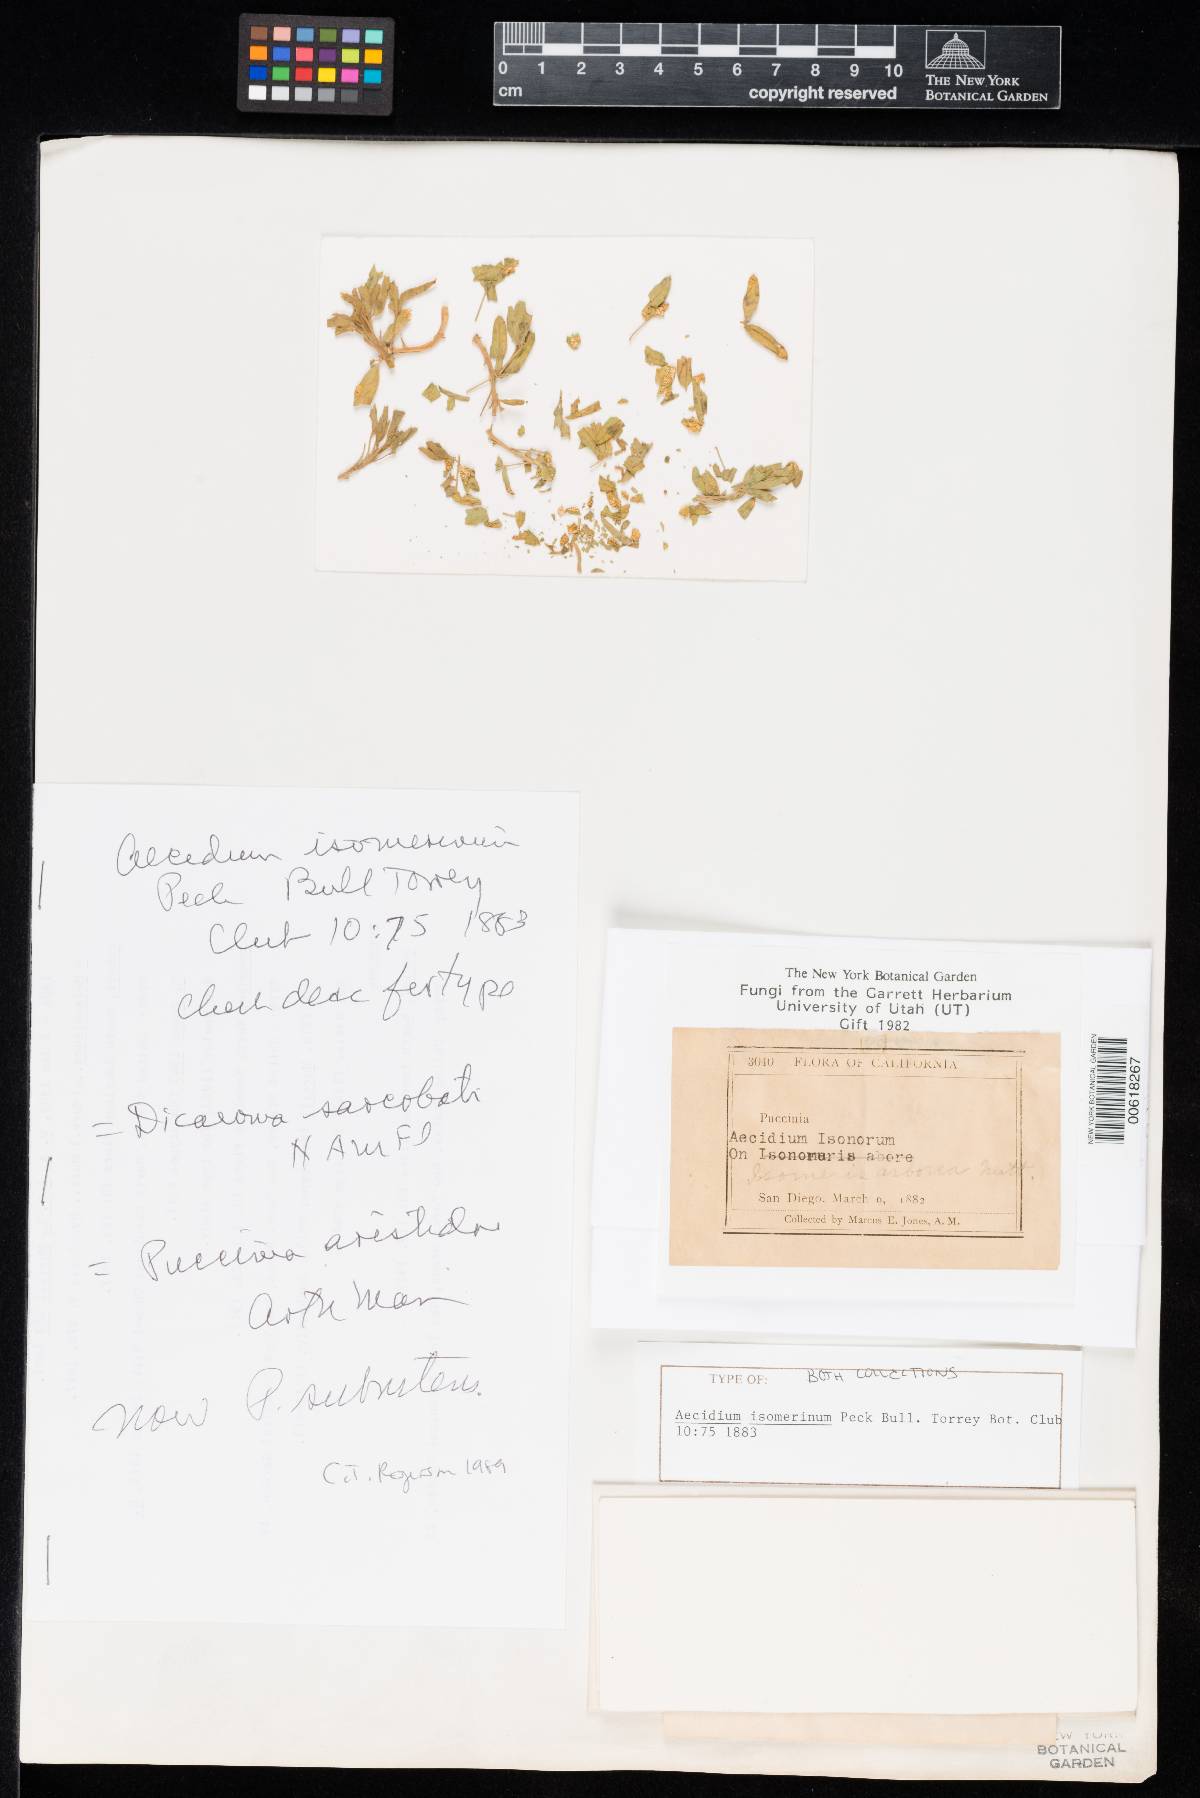 0 1 2 3 4 5 6 7 8 9 10
cm
copyright reserved
THE NEW YORK
BOTANICAL GARDEN
Aecidium isomerinum
Peck Bull Torrey
Club 10:75 1883
check desc for type
= Dicaeoma sarcobati
N Am Fl
= Puccinia aristidae
Arth Man
now P. subnitens.
C.T. Rogerson 1989
The New York Botanical Garden
Fungi from the Garrett Herbarium
University of Utah (UT)
Gift 1982
3040 FLORA OF CALIFORNIA
Puccinia
Aecidium Isonorum
On Isonomuris abore
Isomeris arborea Nutt.
San Diego. March 9, 1882
Collected by Marcus E. Jones, A. M.
NEW YORK BOTANICAL GARDEN
00618267
TYPE OF: BOTH COLLECTIONS
Aecidium isomerinum Peck Bull. Torrey Bot. Club
10:75 1883
BOTANICAL
GARDEN